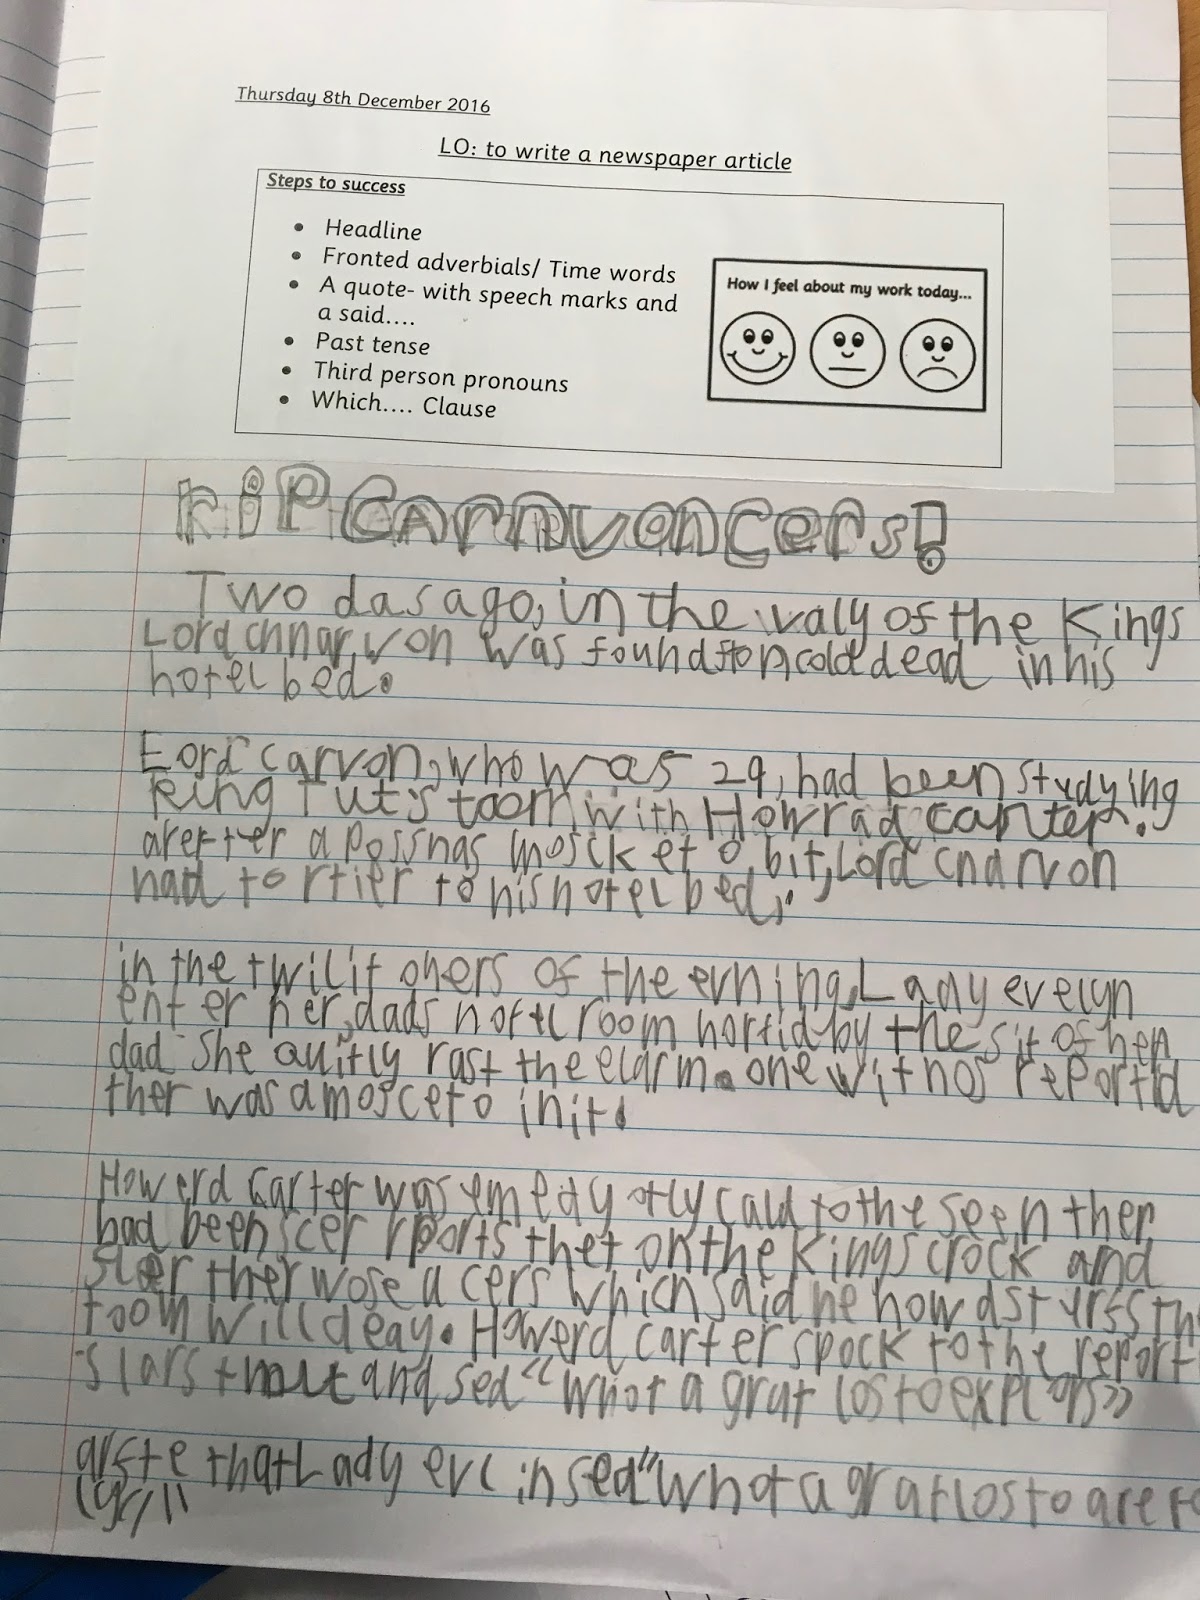 Thursday 8th December 2016
LO: to write a newspaper article
Steps to success
Headline
Fronted adverbials/ Time words
A quote- with speech marks and
a said....
Past tense
Third person pronouns
Which.... Clause
How I feel about my work today...
RiP Carnvoncers!
Two das ago, in the valy of the Kings
Lord chnarvon was found cold dead in his
hotel bed.
Lord carvon, who was 29, had been studying
King Tut's toom with Howrad canter.
arefter a possnas moscketo bit, Lord cnarvon
had to rtier to his hotel bed,.
in the twilit ohers of the evning, Lady evelyn
enter her dads hotel room horfid by the sit of her
dad She quitly rast the elarm. one witnos reportid
ther was a mosceto in it.
Howerd Carter was emedyotly cald to the seen ther
had been scer rports thet on the Kings crock and
ther wose a cers which said he how dsturss th
toom will deay. Howerd carter spock to the report
slars and sed "whot a grat los to explors"
arfte that Lady evlin sed "whot a grat los to are